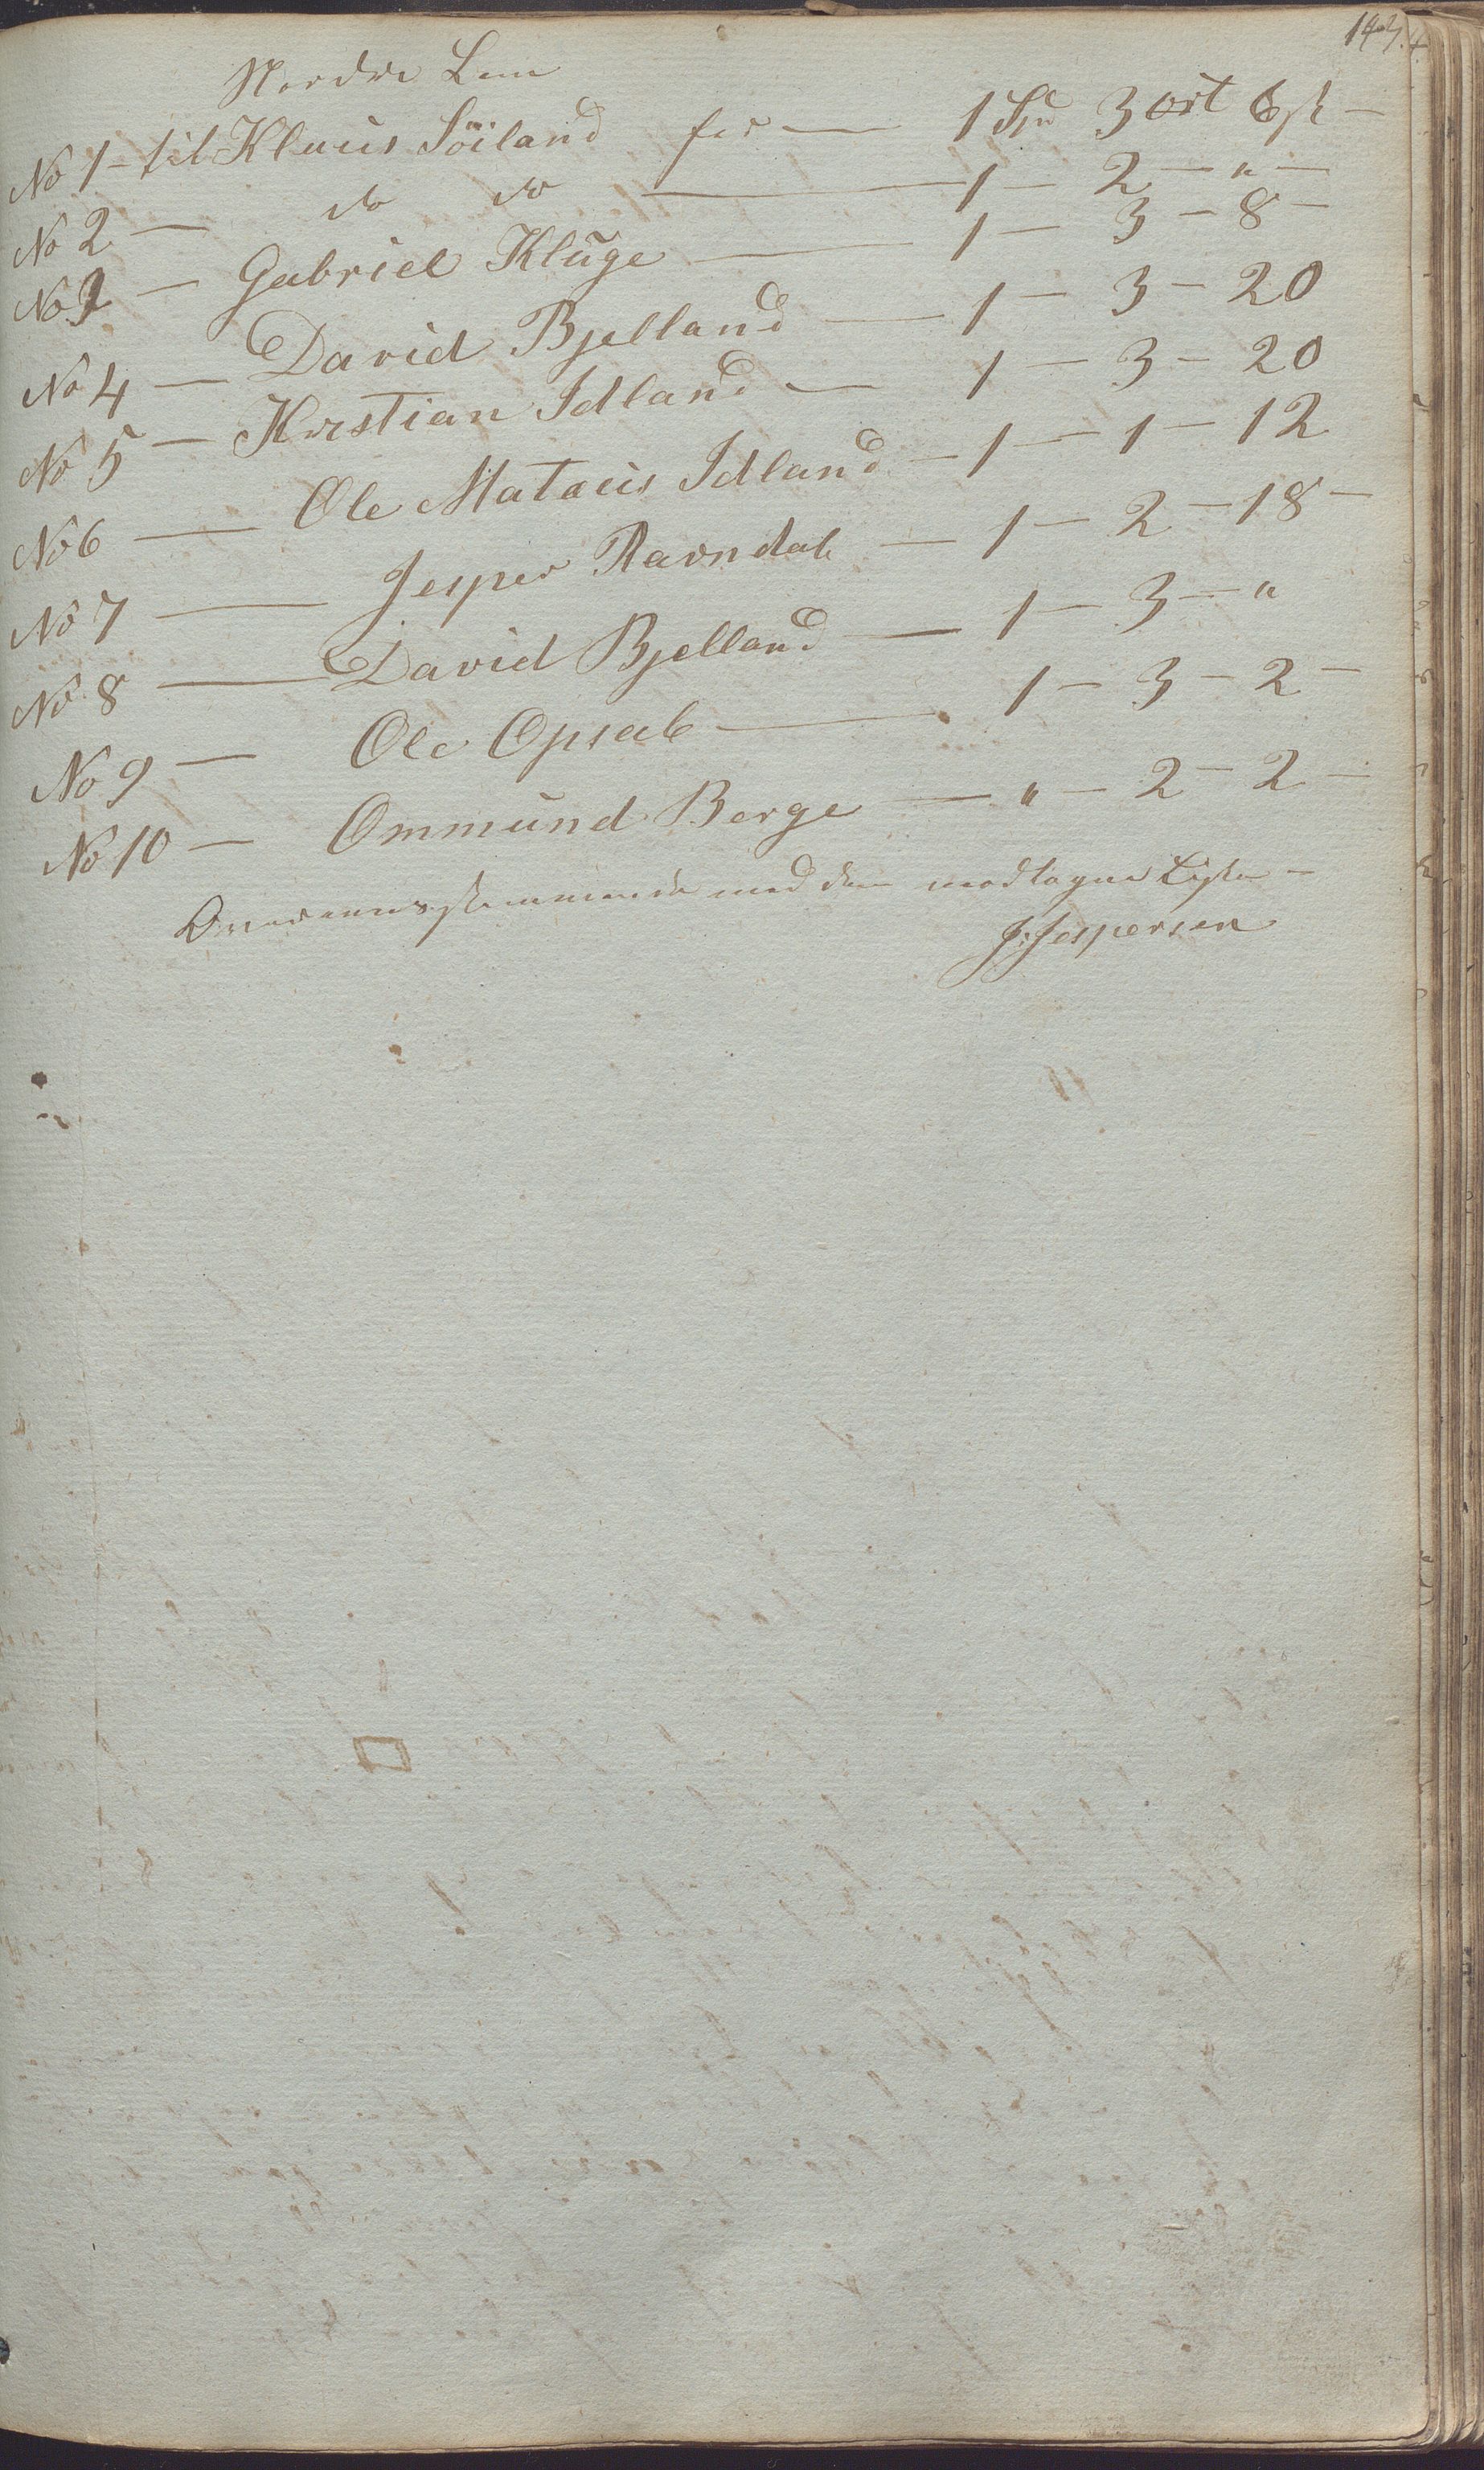 143.
Nordre Lem
No 1 - til Klaus Söiland for — 1 Spd 3 ort 6 sk —
No 2 — do do — 1 — 2 — " —
No 3 — Gabriel Kluge — 1 — 3 — 8 —
No 4 — David Bjelland — 1 — 3 — 20
No 5 — Kristian Idland — 1 — 3 — 20
No 6 — Ole Mataus Idland — 1 — 1 — 12
No 7 — Jesper Ravndal — 1 — 2 — 18 —
No 8 — David Bjelland — 1 — 3 — "
No 9 — Ole Opsal — 1 — 3 — 2 —
No 10 — Ommund Berge — " — 2 — 2 —
Overeensstemmende med den modtagne Liste —
J. Jespersen